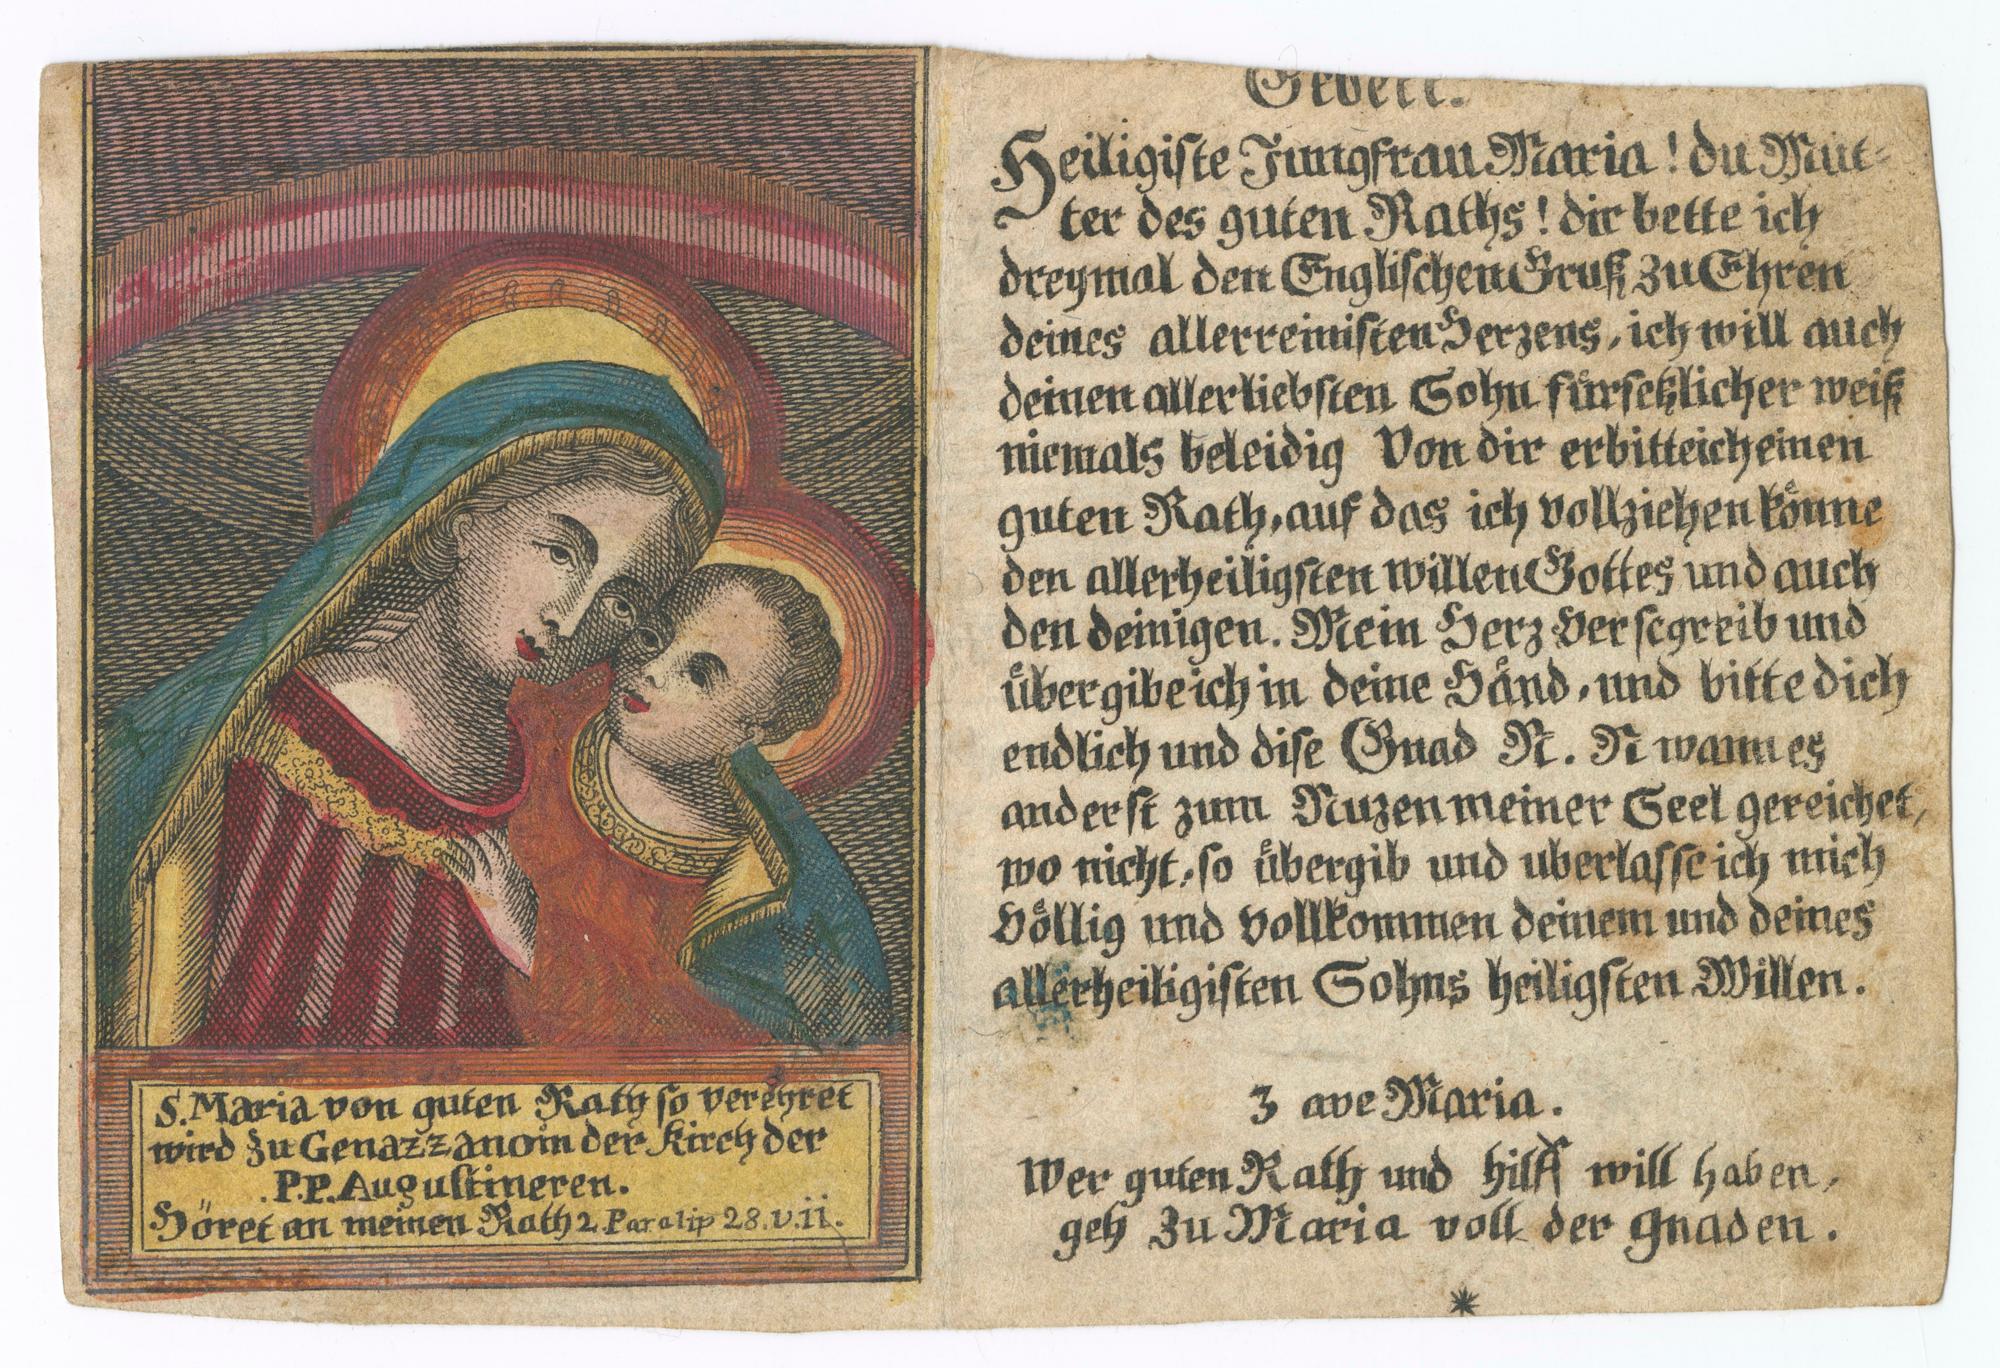 S. Maria von guten Rath so verehret
wird zu Genazzano in der Kirch der
P.P. Augustineren.
Höret an meinen Rath 2. Paralip 28. v. ii.
Gebett.
Heiligiste Jungfrau Maria! du Mut=
ter des guten Raths! dir bette ich
dreymal den Englischen Gruß zu Ehren
deines allerreinisten Herzens, ich will auch
deinen allerliebsten Sohn fürsetzlicher weiß
niemals beleidig Von dir erbitte ich einen
guten Rath, auf das ich vollziehen könne
den allerheiligsten willen Gottes und auch
den deinigen. Mein Herz verscgreib und
übergibe ich in deine Händ, und bitte dich
endlich und dise Gnad N. N wann es
anderst zum Nuzen meiner Seel gereichet,
wo nicht, so übergib und uberlasse ich mich
völlig und vollkommen deinem und deines
allerheiligisten Sohns heiligsten Willen.
3 ave Maria.
Wer guten Rath und hilff will haben,
geh zu Maria voll der gnaden.